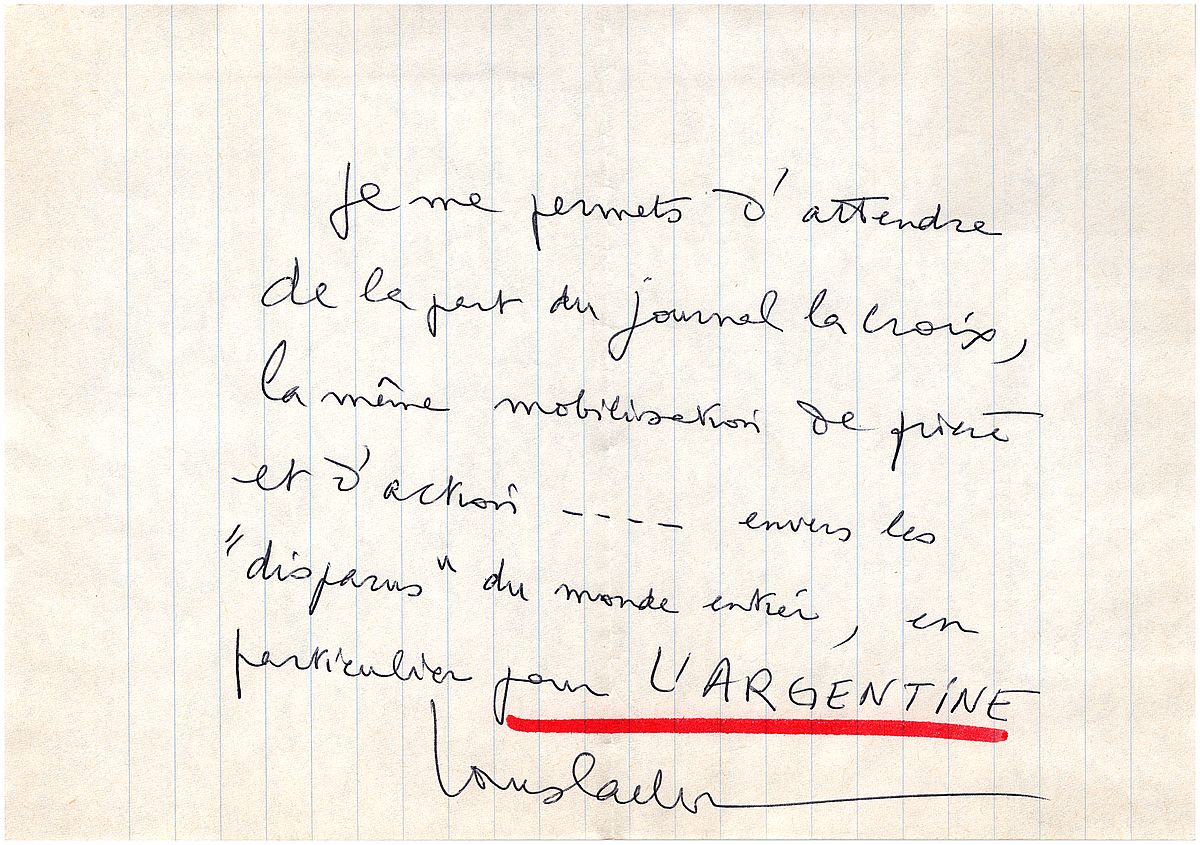 Je me permets d'attendre
de la part du journal la croix,
la même mobilisation de piété
et d'action ---- envers les
"disparus" du monde entier, en
particulier pour L'ARGENTINE